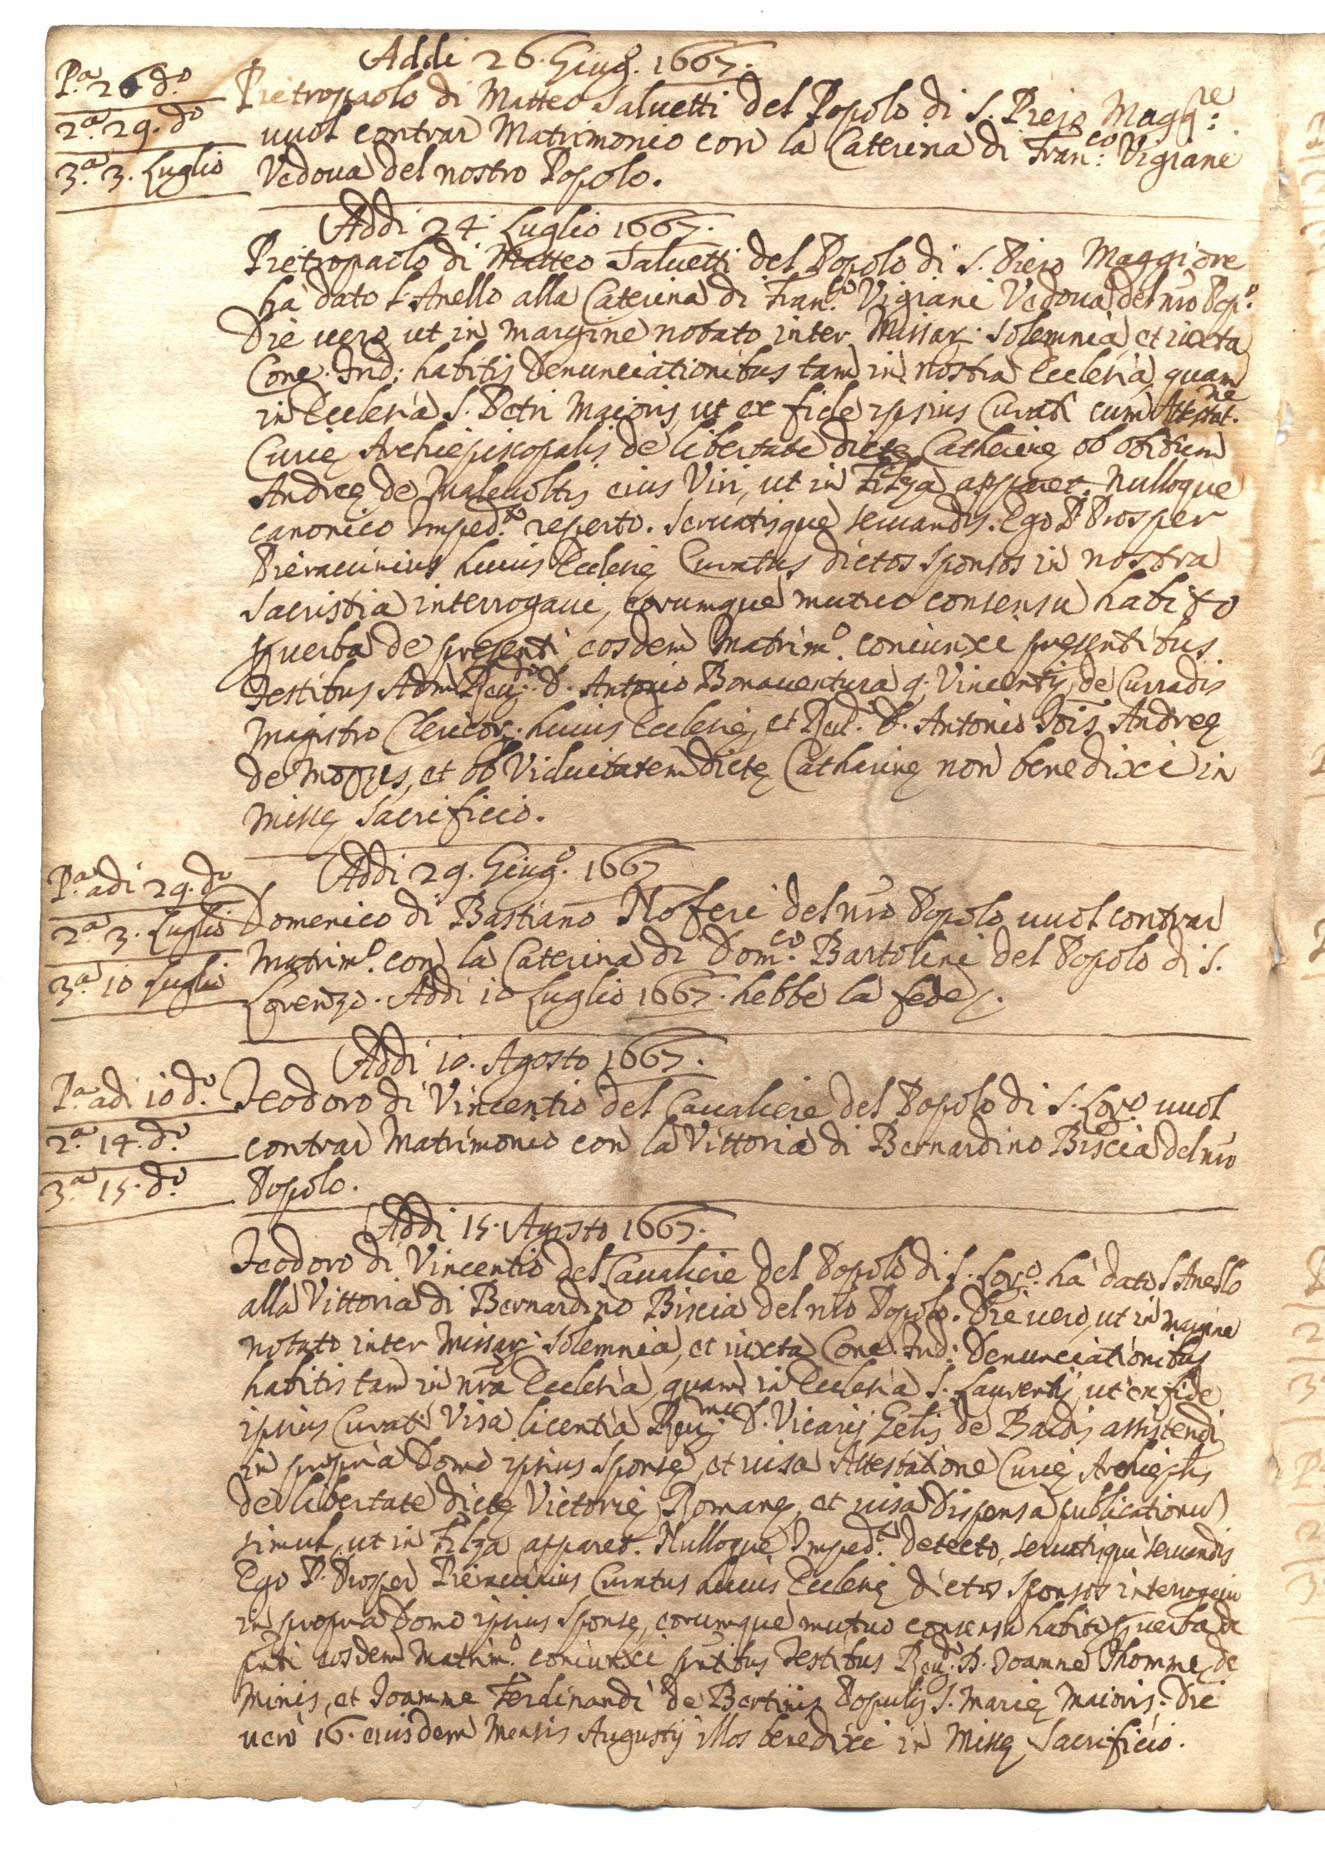 Addi 26. Giug.º 1667.
P.ª 26 d.º
2.ª 29. d.º
3.ª 3. Luglio
Pietropaolo di Matteo Saluetti del Popolo di S. Piero Magg.re
uuol contrar Matrimonio con la Caterina di Fran.co Vigiani
Vedoua del nostro Popolo.
Addi 24. Luglio 1667.
Pietropaolo di Matteo Saluetti del Popolo di S. Piero Maggiore
ha dato l'Anello alla Caterina di Fran.co Vigiani Vedoua del nro Pop.º
Die uero ut in margine notato inter Missar. solemnia, et iuxta
Conc. Trid: habitis Denunciationibus tam in nostra Ecclesia quam
in Ecclesia S. Petri Maioris, ut ex fide ipsius Curati cum Attestat.ne
Curię Archiepiscopalis de libertate dictę Catherinę ob obitum
Andreę de Maleuoltis eius Viri, ut in Filza apparet. Nulloque
canonico Imped.to reperto. Seruatisque seruandis. Ego P. Prosper
Pieraccinius huius Ecclesię Curatus dictos sponsos in nostra
Sacristia interrogaui, eorumque mutuo consensu habito
p uerba de presenti eosdem Matrim.º coniunxi presentibus
Testibus Adm Reu.do D. Antonio Bonauentura q. Vincentij de Curradis
Magistro Clericor. huius Ecclesię, et Reu.do D. Antonio Iois Andreę
de, et ob Viduitatem dictę Catharinę non benedixi in
Missę Sacrificio.
Addi 29. Giug.º 1667
P.ª adi 29. d.º
2.ª 3. Luglio
3.ª 10 Luglio
Domenico di Bastiano Noferi del nro Popolo uuol contrar
Matrim.º con la Caterina di Dom.co Bartolini del Popolo di S.
Lorenzo. Addi 10 Luglio 1667. hebbe la fede.
Addi 10. Agosto 1667.
P.ª adi 10 d.º
2.ª 14. d.º
3.ª 15. d.º
Teodoro di Vincentio del Caualiere del Popolo di S. Lor.º uuol
contrar Matrimonio con la Vittoria di Bernardino Biscia del nro
Popolo.
Addi 15. Agosto 1667.
Teodoro di Vincentio del Caualiere del Popolo di S. Lor.º ha dato l'Anello
alla Vittoria di Bernardino Biscia del nro Popolo. Die uero, ut in margine
notato inter Missar. solemnia, et iuxta Conc. Trid: Denunciationibus
habitis tam in nra Ecclesia, quam in Ecclesia S. Laurentij, ut ex fide
ipsius Curati Visa licentia Reu.mi D. Vicarij Gelis de Baldis assistendi
in propria Domo ipsius Sponsę, et uisa Attestatione Curię Archieplis
de libertate dictę Victorię Romanę, et uisa Dispensa publicationum
simul, ut in Filza apparet. Nulloque Imped.to detecto, seruatisque seruandis
Ego P. Prosper Pieraccinius Curatus huius Ecclesię dictos sponsos interrogaui
in propria Domo ipsius Sponsę, eorumque mutuo consensu habito p uerba de
pnti eosdem Matrim.º coniunxi pntibus Testibus Reu.do D. Ioanne Thomme de
Minis, et Ioanne Ferdinandi de Bertinis Populi S. Marię Maioris. Die
uero 16. eiusdem Mensis Augusti illos benedixi in Missę Sacrificio.